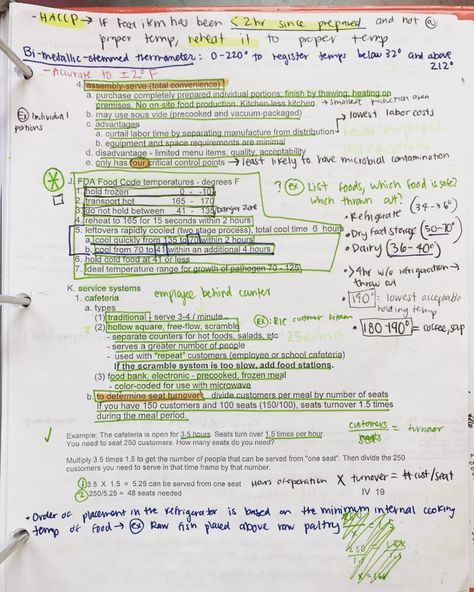 - HACCP → If food item has been < 2hr since prepared and not @
proper temp, reheat it to proper temp
Bi-metallic-stemmed thermometer: 0-220° to register temps below 32° and above
212°
- Accurate to ± 2° F
4. assembly-serve (total convenience)
a. purchase completely prepared individual portions; finish by thawing, heating on
premises. No on-site food production. Kitchen-less kitchen → smallest production area
Ex Individual
portions
b. may use sous vide (precooked and vacuum-packaged)
c. advantages
lowest labor costs
a. curtail labor time by separating manufacture from distribution
b. equipment and space requirements are minimal
d. disadvantage - limited menu items, quality, acceptability
e. only has four critical control points → least likely to have microbial contamination
J. FDA Food Code temperatures - degrees F
1. hold frozen 0 - -10
2. transport hot 165 - 170
3. do not hold between 41 - 135 Danger Zone
4. reheat to 165 for 15 seconds within 2 hours
5. leftovers rapidly cooled (two stage process), total cool time 6 hours
a. cool quickly from 135 to 70 within 2 hours
b. cool from 70 to 41 within an additional 4 hours
6. hold cold food at 41 or less
7. ideal temperature range for growth of pathogen 70 - 125
? Ex List foods, which food is safe?
which thrown out?
• Refrigerate (34-36°)
• Dry food storage (50-70°)
• Dairy (36-40°)
• >4hr w/o refrigeration →
throw out
• 140° = lowest acceptable
holding temp
• 180-190° = coffee, soup
K. service systems
1. cafeteria employee behind counter
a. types
(1) traditional - serve 3-4 / minute
(2) hollow square, free-flow, scramble
- separate counters for hot foods, salads, etc 25x/min
- serves a greater number of people
- used with "repeat" customers (employee or school cafeteria)
If the scramble system is too slow, add food stations.
(3) food bank, electronic - precooked, frozen meal
- color-coded for use with microwave
b. to determine seat turnover: divide customers per meal by number of seats
If you have 150 customers and 100 seats (150/100), seats turnover 1.5 times
during the meal period.
customers = turnover
seats
Example: The cafeteria is open for 3.5 hours. Seats turn over 1.5 times per hour.
You need to seat 250 customers. How many seats do you need?
Multiply 3.5 times 1.5 to get the number of people that can be served from "one seat". Then divide the 250
customers you need to serve in that time frame by that number.
1 3.5 X 1.5 = 5.25 can be served from one seat
2 250/5.25 = 48 seats needed
Hours of operation X turnover = # cust/seat
IV 19
• Order of placement in the refrigerator is based on the minimum internal cooking
temp of food → Ex Raw fish placed above raw poultry